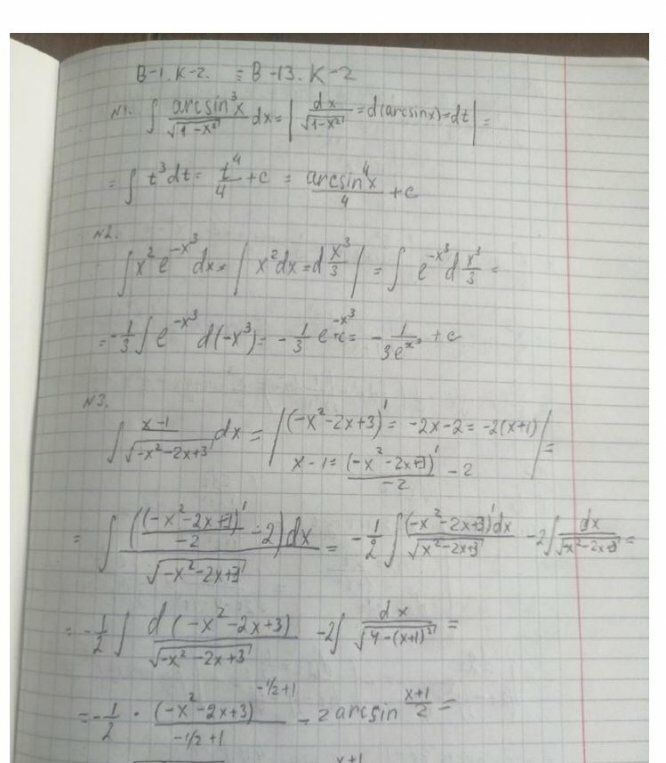 B-1. K-2. = B-13. K-2
N1. ∫ arcsin³x/√(1-x²) dx = | dx/√(1-x²) = d(arcsinx) = dt | =
= ∫ t³dt = t⁴/4 + c = arcsin⁴x/4 + c
N2.
∫ x² e^(-x³) dx = | x²dx = d x³/3 | = ∫ e^(-x³) d x³/3 =
= -1/3 ∫ e^(-x³) d(-x³) = -1/3 e^(-x³) + c = -1/(3e^(x³)) + c
N3.
∫ (x-1)/√(-x²-2x+3) dx = | (-x²-2x+3)' = -2x-2 = -2(x+1)
x-1 = (-x²-2x+3)'/-2 - 2 | =
= ∫ ((-x²-2x+1)'/-2 - 2)dx / √(-x²-2x+3) = -1/2 ∫ (-x²-2x+3)'dx/√(-x²-2x+3) - 2∫ dx/√(-x²-2x+3) =
= -1/2 ∫ d(-x²-2x+3)/√(-x²-2x+3) - 2∫ dx/√(4-(x+1)²) =
= -1/2 · (-x²-2x+3)^(-1/2+1)/(-1/2+1) - 2 arcsin (x+1)/2 =
x+1